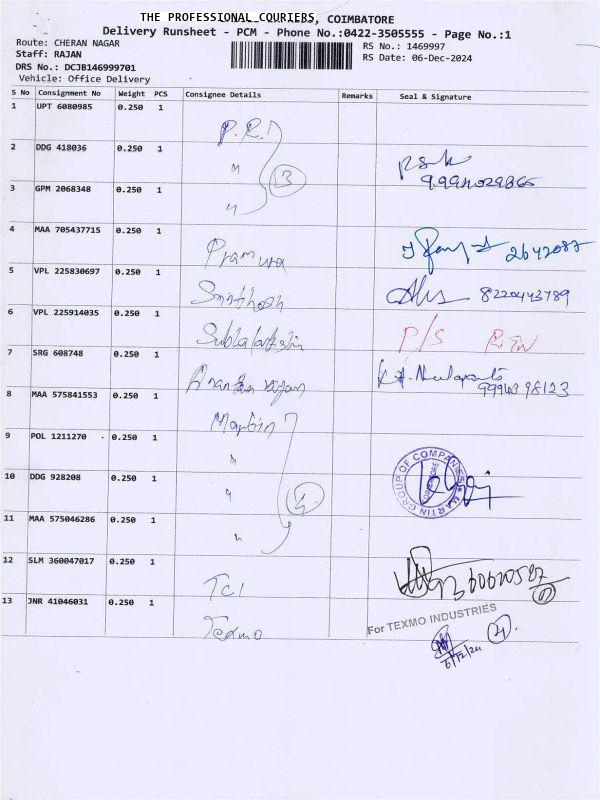 THE PROFESSIONAL COURIERS, COIMBATORE
Delivery Runsheet - PCM - Phone No.:0422-3505555 - Page No.:1
Route: CHERAN NAGAR
RS No.: 1469997
Staff: RAJAN
RS Date: 06-Dec-2024
DRS No.: DCJB146999701
Vehicle: Office Delivery
S No Consignment No Weight PCS Consignee Details Remarks Seal & Signature
1 UPT 6080985 0.250 1 P.R.
2 DDG 418036 0.250 1 " 3
3 GPM 2068348 0.250 1 "
4 MAA 705437715 0.250 1 2642087
5 VPL 225830697 0.250 1 8220443789
6 VPL 225914035 0.250 1 P/S
7 SRG 608748 0.250 1
8 MAA 575841553 0.250 1 Martin 9994398123
9 POL 1211270 0.250 1 "
10 DDG 928208 0.250 1 " 4 MARTIN GROUP OF COMPANIES COIMBATORE
11 MAA 575046286 0.250 1 "
12 SLM 360047017 0.250 1 TCI
13 JNR 41046031 0.250 1 Texmo For TEXMO INDUSTRIES
6/12/24